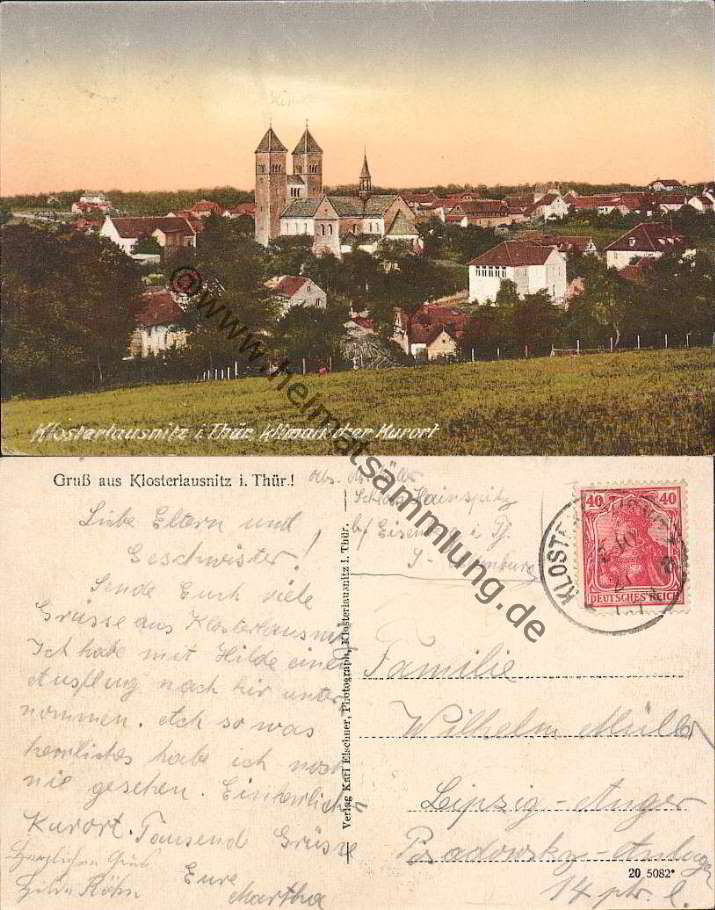 Klosterlausnitz i. Thür. klimatischer Kurort
@www.heimatsammlung.de
Gruß aus Klosterlausnitz i. Thür.!
Liebe Eltern und
Geschwister!
Sende Euch viele
Grüsse aus Klosterlausnitz
Ich habe mit Hilde einen
Ausflug nach hir unter
nommen. Ach so was
herrliches habe ich noch
nie gesehen.
Kurort. Tausend Grüsse
Eure
Martha
Herzlichen Gruß
Hilde Köhn
Verlag Karl Elschner, Photograph, Klosterlausnitz i. Thür.
Abs.
Schloss Hainspitz
b/ Eisenberg i. Th.
S-Altenburg
40 40
DEUTSCHES REICH
KLOSTE
Familie
Wilhelm Müller
Leipzig-Anger
20 5082*
14 ptr. l.